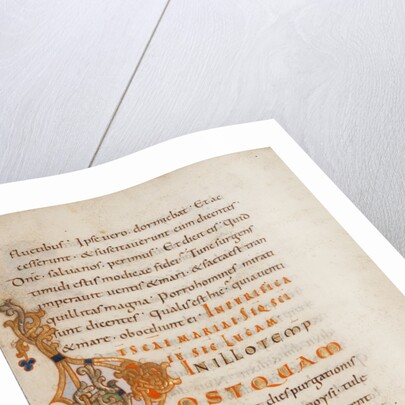 fluctibus; Ipse uero dormiebat. Et ac
cesserunt, & suscitauerunt eum dicentes.
Dne, salua nos. perimus. Et dicit eis. Quid
timidi estis modicae fidei? Tunc surgens
imperauit uentis & mari, & facta est tran
quillitas magna; Porro homines mirati
sunt dicentes. Qualis est hic, quia uenti
& mare, oboediunt ei; IN PURIFICA
TSCAE MARIAE SEQ SCI
EU SEC LUCAM.
IN ILLO TEMP
POSTQUAM
dies purgationis